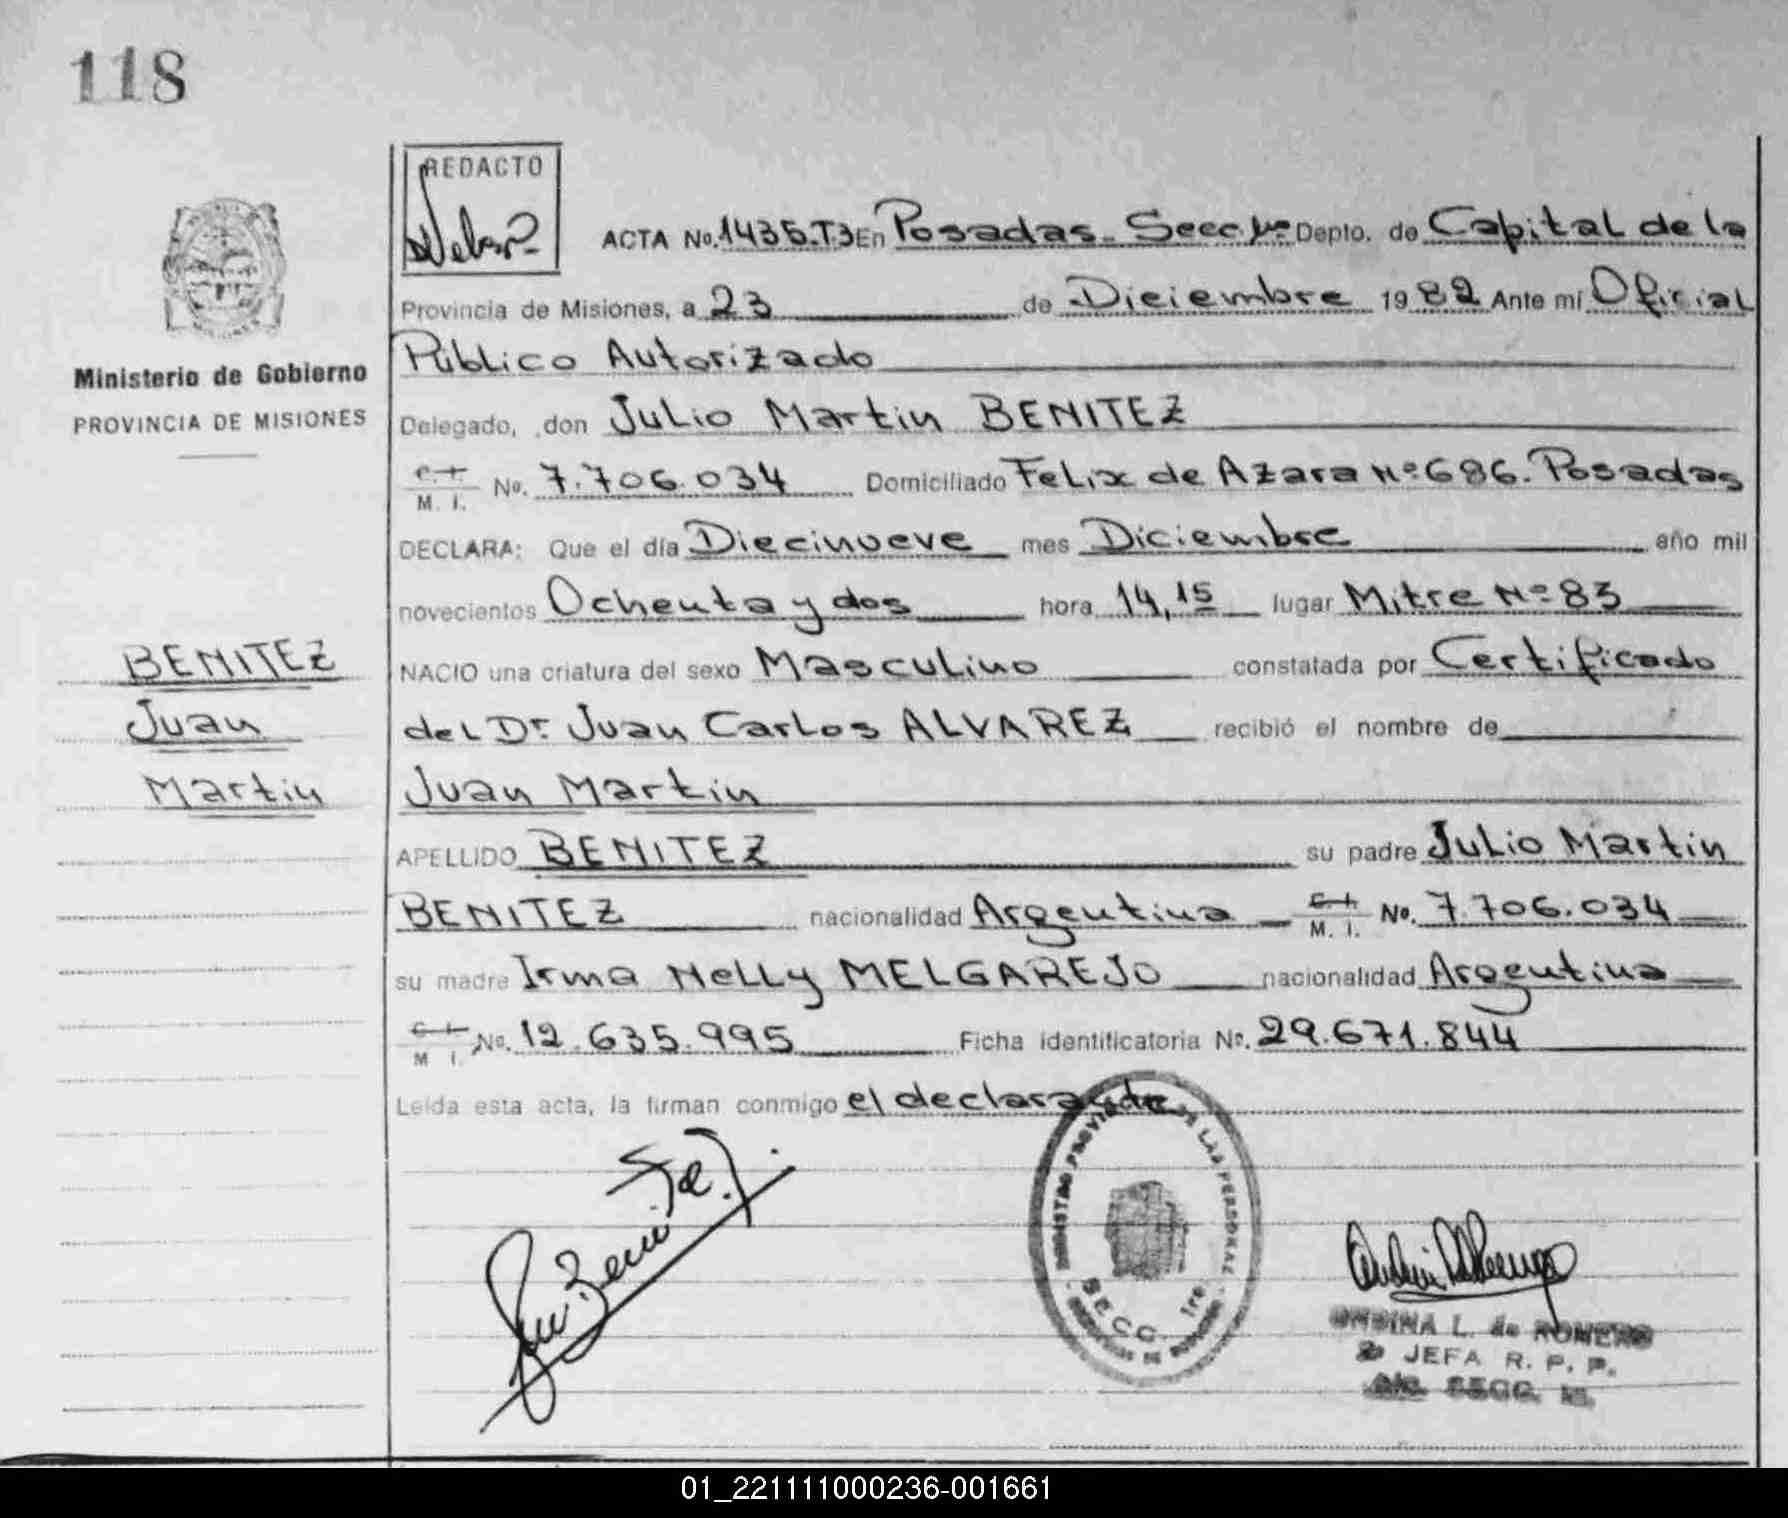 118
REDACTO
ACTA No. 1435.T3 En Posadas - Secc 1ra Depto. de Capital de la
Provincia de Misiones, a 23 de Diciembre 1982 Ante mí Oficial
Ministerio de Gobierno
PROVINCIA DE MISIONES
Público Autorizado
Delegado, don Julio Martin BENITEZ
C. I. M. I. No. 7.706.034 Domiciliado Felix de Azara Nº 686. Posadas
DECLARA: Que el día Diecinueve mes Diciembre año mil
novecientos Ochenta y dos hora 14,15 lugar Mitre Nº 83
BENITEZ
Juan
Martin
NACIO una criatura del sexo Masculino constatada por Certificado
del Dr. Juan Carlos ALVAREZ recibió el nombre de
Juan Martin
APELLIDO BENITEZ su padre Julio Martin
BENITEZ nacionalidad Argentina C. I. M. I. No. 7.706.034
su madre Irma Nelly MELGAREJO nacionalidad Argentina
C. I. M. I. No. 12.635.995 Ficha identificatoria No. 29.671.844
Leída esta acta, la firman conmigo el declarante
REGISTRO PROVINCIAL DE LAS PERSONAS
SECC. 1ra.
L. de ROMERO
JEFA R. P. P.
SECC.
01_221111000236-001661